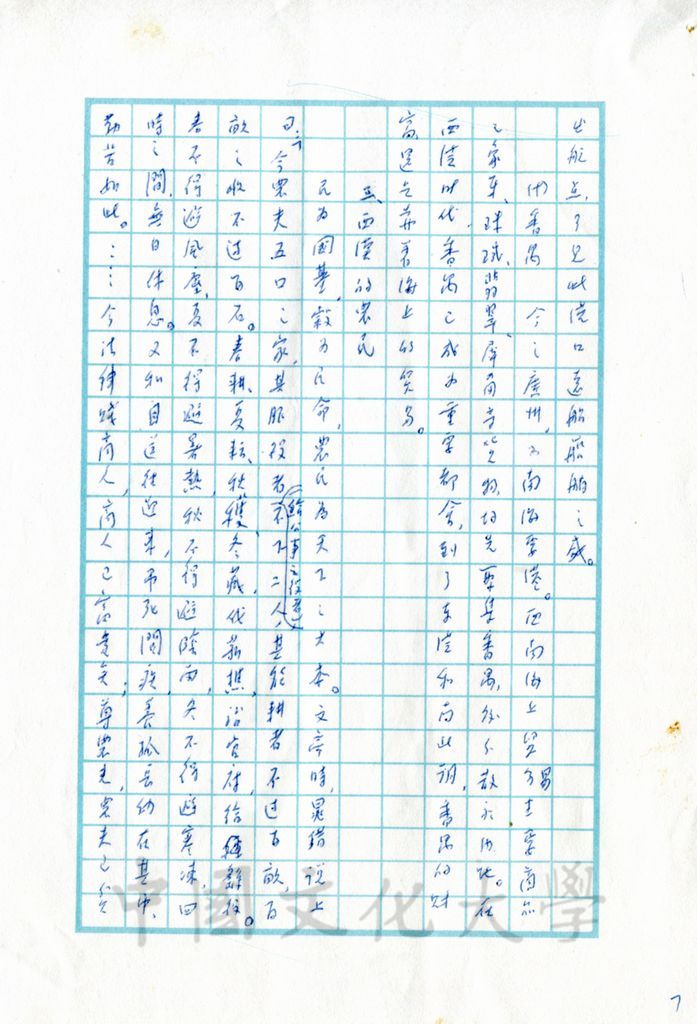 出航点，了见此港口遠船艦舶之感。
四番禺　今之廣州，为南海要港。西南海上貿易主要商品
之象牙、珠璣、翡翠、犀角等货物均先聚集番禺，然后散永各地。在
西漢时代，番禺已成为重要都會，到了东漢和南北朝，番禺的财
富，還是靠着海上的貿易。
五、西漢的農民
民为國基，穀为民命，農民为天下之大本。文帝時，晁錯说上
曰：「今農夫五口之家，其服役者（給公事之役者）不下二人，其能耕者不过百畝，百
畝之收不过百石。春耕、夏耘、秋穫、冬藏，伐薪樵，治官府，給繇役。
春不得避風塵，夏不得避暑熱，秋不得避陰雨，冬不得避寒凍，四
時之間，無日休息。又私自送往迎来，吊死問疾，養孤長幼在其中，
勤苦如此。……今法律賤商人，商人已富貴矣；尊農夫，農夫已貧
7
中國文化大學